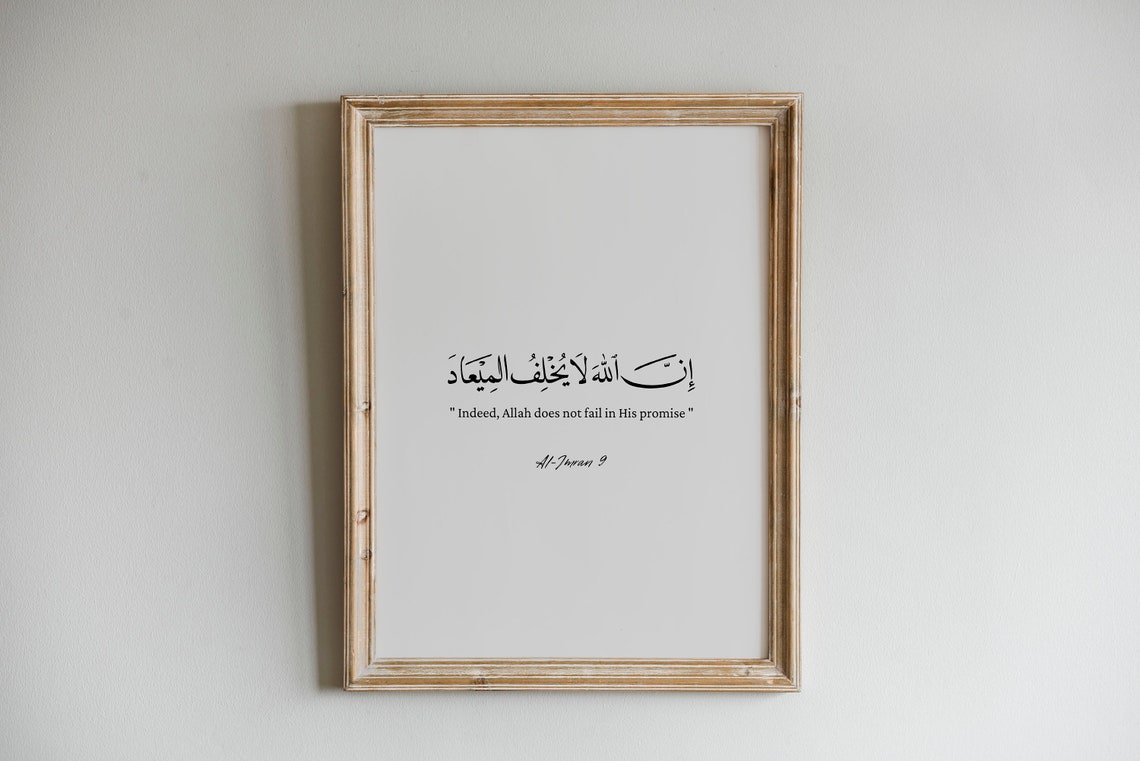 إِنَّ ٱللَّهَ لَا يُخْلِفُ المِيْعَادَ
" Indeed, Allah does not fail in His promise "
Al-Imran 9